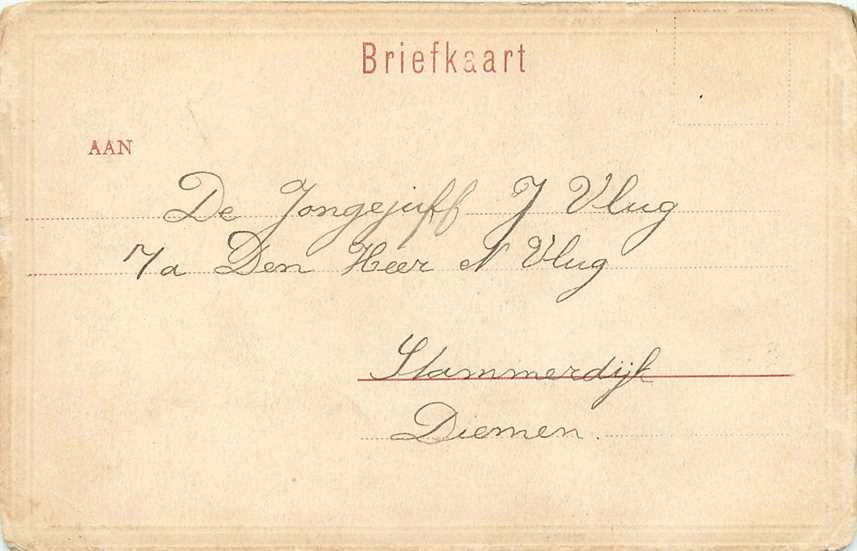 Briefkaart
AAN
De Jongejuff J Vlug
7/a Den Heer N Vlug
Stammerdijk
Diemen.